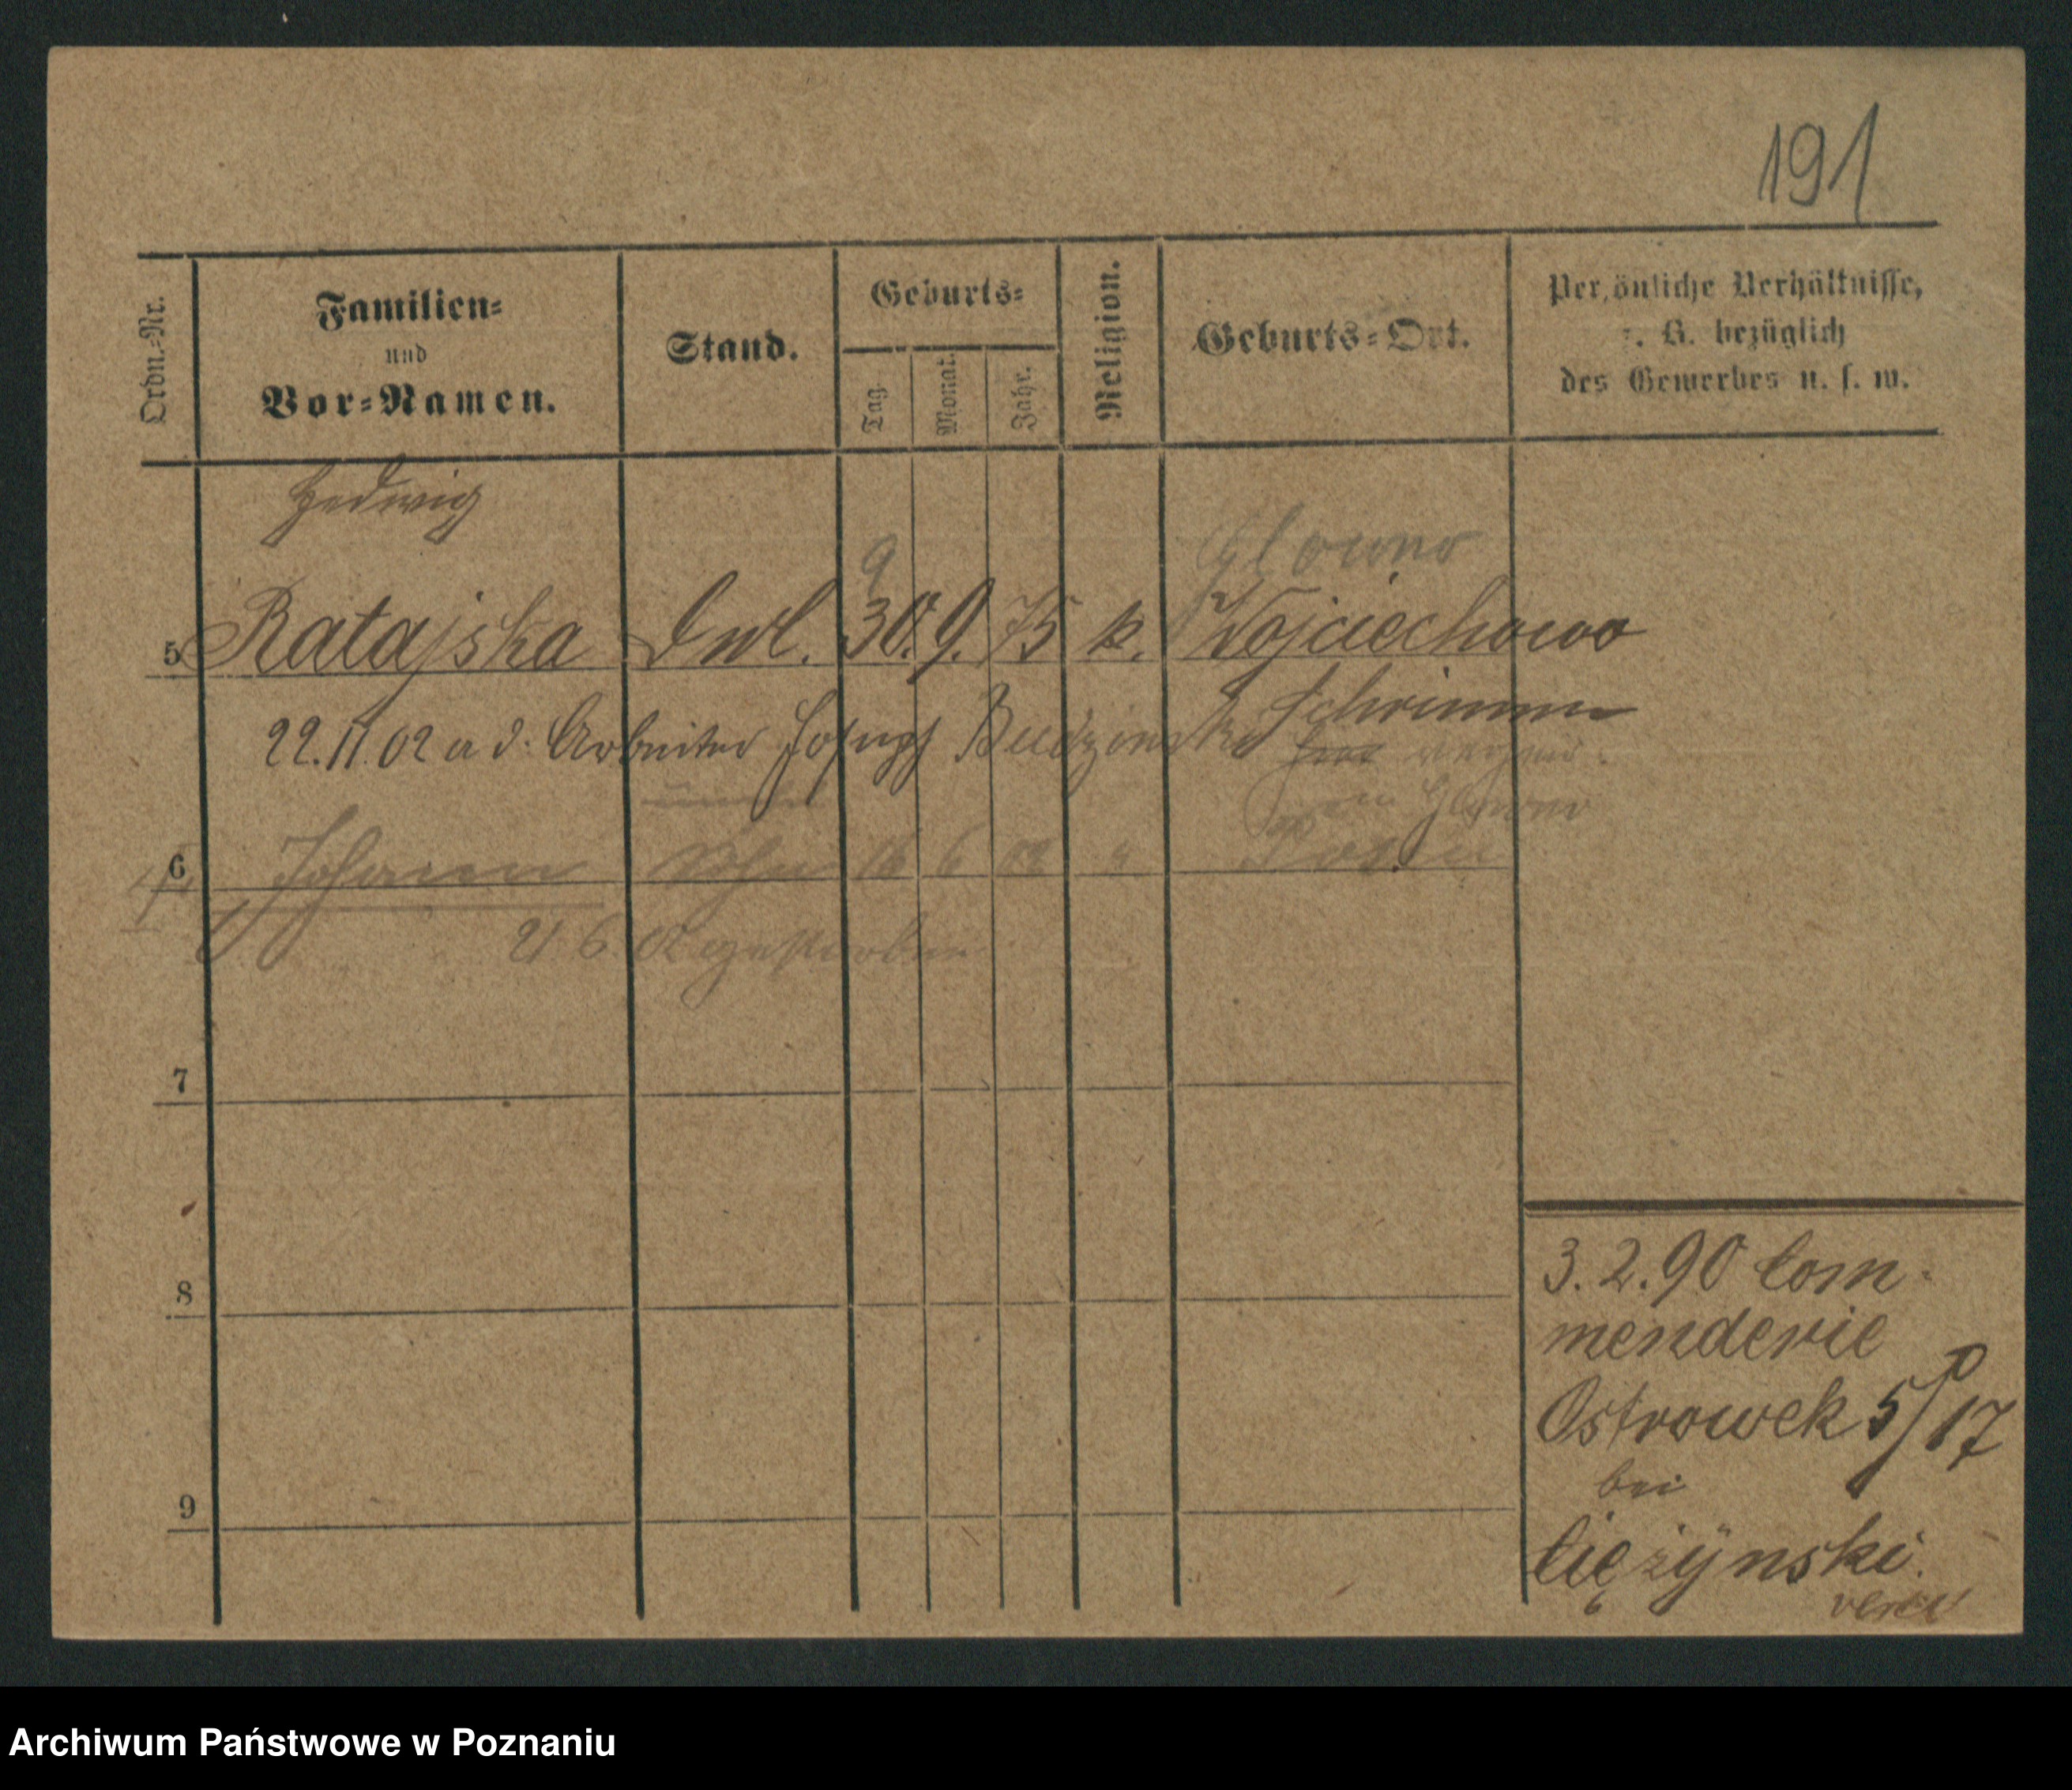 191
Ordn.-Nr.
Familien-
und
Vor-Namen.
Stand.
Geburts-
Tag.
Monat.
Jahr.
Religion.
Geburts-Ort.
Persönliche Verhältnisse,
z. B. bezüglich
des Gewerbes u. s. w.
Hedwig
9
Glowno
5 Ratajska 30. 9. 75 k. Wojciechowo
Schrimm
22.11.02 a d. Arbeiter Josef Budzinski
Glowno
6 Johann Sohn 16 6 02 " Posen
21 6. 02 gestorben
7
8
9
3. 2. 90 Com-
menderie
Ostrowek 5/17
bei
Ciężynski.
Archiwum Państwowe w Poznaniu